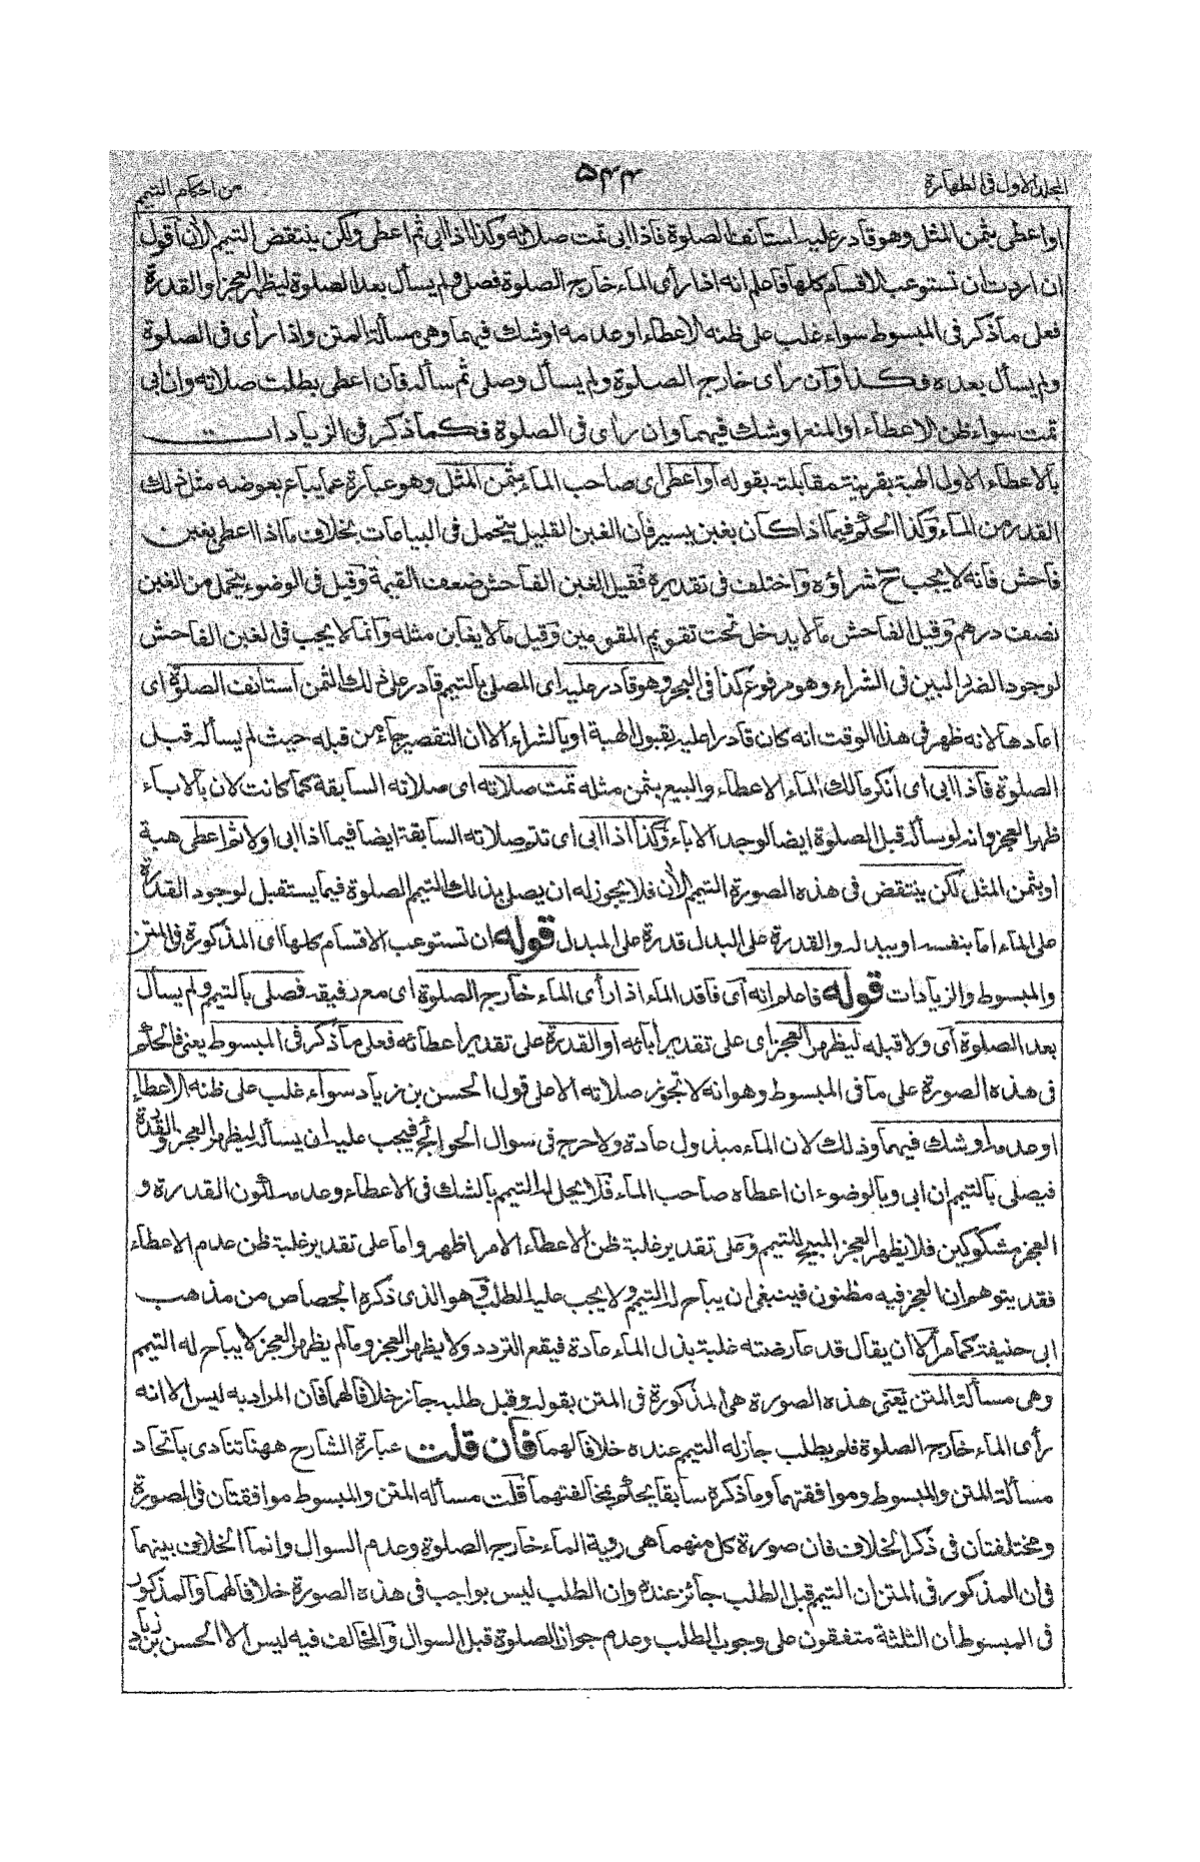 المجلد الاول فى الطهارة
۵۴۴
من احكام التيمم
او اعطى بثمن المثل وهو قادر عليه استأنف الصلوة فاذا ابى تمت صلاته وكذا اذا ابى ثم اعطى ولكن ينتقض التيمم الأن اقول
ان اردت ان تستوعب الاقسام كلها فاعلم انه اذا رأى الماء خارج الصلوة فصلى ولم يسأل بعد الصلوة ليظهر العجز او القدرة
فعلى ما ذكر فى المبسوط سواء غلب على ظنه الاعطاء او عدمه او شك فيهما وهى مسألة المتن واذا رأى فى الصلوة
ولم يسأل بعده فكذا وان رأى خارج الصلوة ولم يسأل وصلى ثم سأله فان اعطى بطلت صلاته وان ابى
تمت سواء ظن الاعطاء او المنع او شك فيهما وان رأى فى الصلوة فكما ذكر فى الزيادات
بالاعطاء الاول الهبة بقرينة مقابلته بقوله او اعطى اى صاحب الماء بثمن المثل وهو عبارة عما يباع بعوضه مثل ذلك
القدر من الماء وكذا الحكم فيما اذا كان بغبن يسير فان الغبن القليل يتحمل فى البياعات بخلاف ما اذا اعطى بغبن
فاحش فانه لا يجب ح شراؤه واختلف فى تقديره فقيل الغبن الفاحش ضعف القيمة وقيل فى الوضوء يتحمل من الغبن
نصف درهم وقيل الفاحش ما لا يدخل تحت تقويم المقومين وقيل ما لا يغابن مثله وانما لا يجب فى الغبن الفاحش
لوجود الضرر المبين فى الشراء وهو مرفوع كذا فى البحر وهو قادر عليه اى المصلى بالتيمم قادر على ذلك الثمن استأنف الصلوة اى
اعادها لانه ظهر فى هذا الوقت انه كان قادرا عليه بقبول الهبة او بالشراء الا ان التقصير جاء من قبله حيث لم يسأله قبل
الصلوة فاذا ابى اى انكر مالك الماء الاعطاء والبيع بثمن مثله تمت صلاته اى صلاته السابقة كما كانت لان بالاباء
ظهر العجز وانه لو سأله قبل الصلوة ايضا لوجد الاباء وكذا اذا ابى اى تتم صلاته السابقة ايضا فيما اذا ابى اولا ثم اعطى هبة
او بثمن المثل لكن ينتقض فى هذه الصورة التيمم الأن فلا يجوز له ان يصلى بذلك التيمم الصلوة فيما يستقبل لوجود القدرة
على الماء اما بنفسه او ببدله والقدرة على البدل قدرة على المبدل قوله ان تستوعب الاقسام كلها اى المذكورة فى المتن
والمبسوط والزيادات قوله فاعلم انه اى فاقد الماء اذا رأى الماء خارج الصلوة اى مع رفيقه فصلى بالتيمم ولم يسأل
بعد الصلوة اى ولا قبله ليظهر العجز اى على تقدير ابائه او القدرة على تقدير اعطائه فعلى ما ذكر فى المبسوط يعنى فالحكم
فى هذه الصورة على ما فى المبسوط وهو انه لا تجوز صلاته الا على قول الحسن بن زياد سواء غلب على ظنه الاعطاء
او عدمه او شك فيهما وذلك لان الماء مبذول عادة ولا حرج فى سوال الحوائج فيجب عليه ان يسأله ليظهر العجز والقدرة
فيصلى بالتيمم ان ابى وبالوضوء ان اعطاه صاحب الماء فلا يحل له التيمم بالشك فى الاعطاء وعدمه لكون القدرة و
العجز مشكوكين فلا يظهر العجز المبيح للتيمم وعلى تقدير غلبة ظن الاعطاء الامر اظهر واما على تقدير غلبة ظن عدم الاعطاء
فقد يتوهم ان العجز فيه مظنون فينبغى ان يباح له التيمم ولا يجب عليه الطلب وهو الذى ذكره الجصاص من مذهب
ابى حنيفة كما مر الا ان يقال قد عارضته غلبة بذل الماء عادة فيقع التردد ولا يظهر العجز وما لم يظهر العجز لا يباح له التيمم
وهى مسألة المتن يعنى هذه الصورة هى المذكورة فى المتن بقوله وقبل طلبه جاز خلافا لهما فان المراد به ليس الا انه
رأى الماء خارج الصلوة فلم يطلب جاز له التيمم عنده خلافا لهما فان قلت عبارة الشارح ههنا تنادى باتحاد
مسألة المتن والمبسوط وموافقتهما وما ذكره سابقا يحكم بمخالفتهما قلت مسأله المتن والمبسوط موافقتان فى الصورة
ومختلفتان فى ذكر الخلاف فان صورة كل منهما هى روية الماء خارج الصلوة وعدم السوال وانما الخلاف بينهما
فى ان المذكور فى المتن ان التيمم قبل الطلب جائز عنده وان الطلب ليس بواجب فى هذه الصورة خلافا لهما والمذكور
فى المبسوط ان الثلثة متفقون على وجوب الطلب وعدم جواز الصلوة قبل السوال والمخالف فيه ليس الا الحسن بن زياد